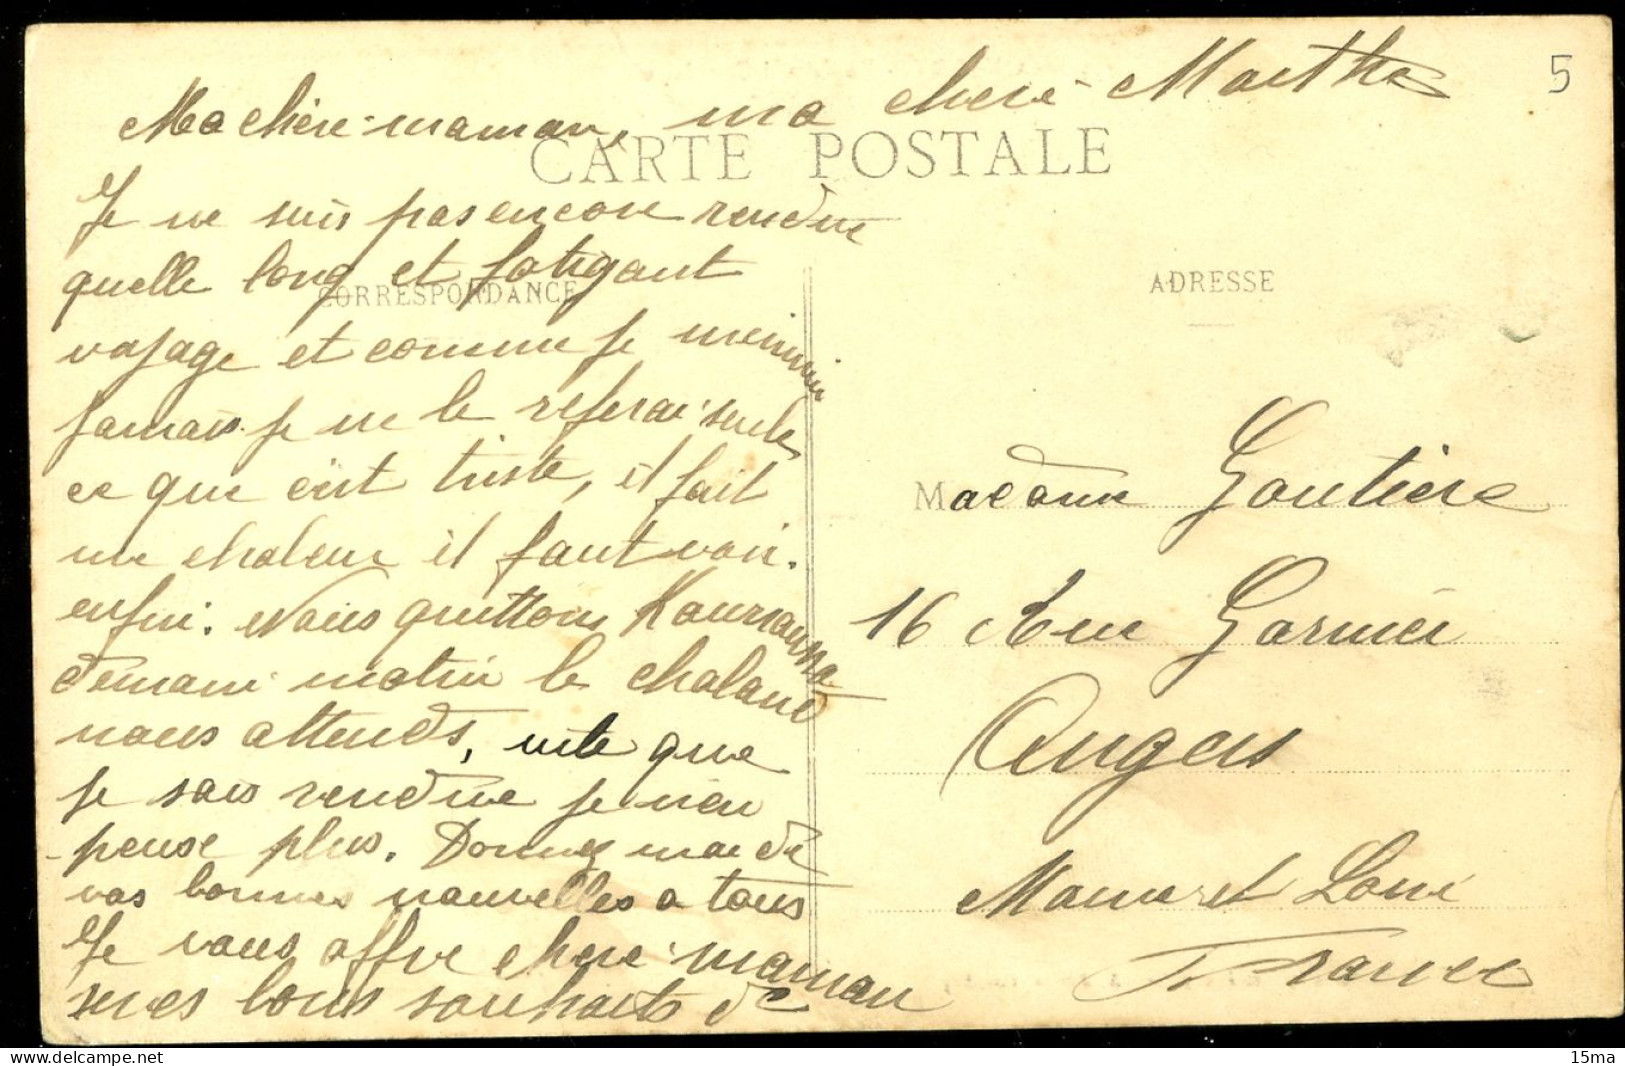 Ma chère maman, ma chère Marthe
5
CARTE POSTALE
Je ne suis pas encore rendue
quelle long et fatigant
CORRESPONDANCE
voyage et comme je
jamais je ne le referai seule,
ce que c'est triste, il fait
une chaleur il faut voir.
enfin. Nous quittons Kouroussa
demain matin le chaland
nous attends, vite que
je sois rendue je n'en
pense plus. Donnez moi de
vos bonnes nouvelles a tous
Je vous offre chère maman
mes bons souhaits de
ADRESSE
Madame Goutière
16 Rue Garnier
Angers
Maine et Loire
France
15ma